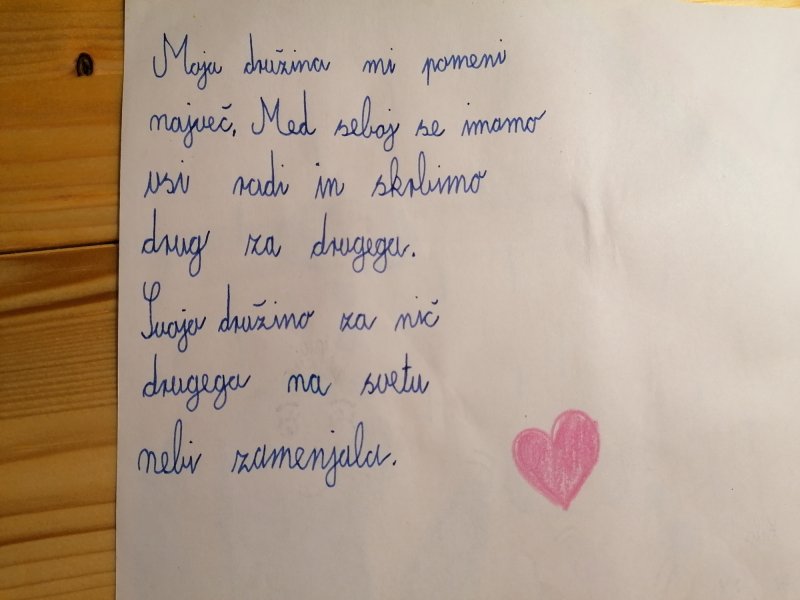 Moja družina mi pomeni
največ. Med seboj se imamo
vsi radi in skrbimo
drug za drugega.
Svojo družino za nič
drugega na svetu
nebi zamenjala.